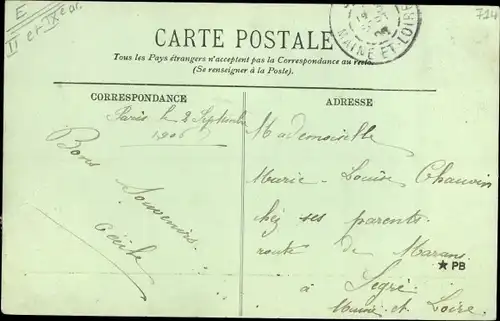 E
II et IXe ar.
714
CARTE POSTALE
MAINE-ET-LOIRE
Tous les Pays étrangers n'acceptent pas la Correspondance au recto.
(Se renseigner à la Poste).
CORRESPONDANCE
Paris le 2 Septembre
1906
Bons
Souvenirs
Cécile
ADRESSE
Mademoiselle
Marie-Louise Chauvin
chez ses parents
route de Marans
à Segré
Maine et Loire
★ PB